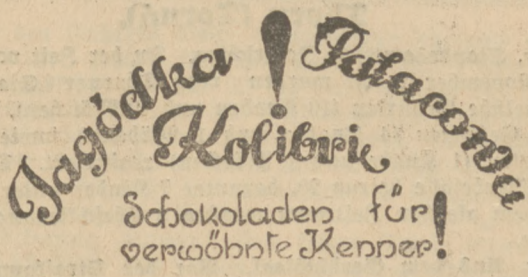 Jagódka ! Pałacowa
Kolibri
Schokoladen für
verwöhnte Kenner!